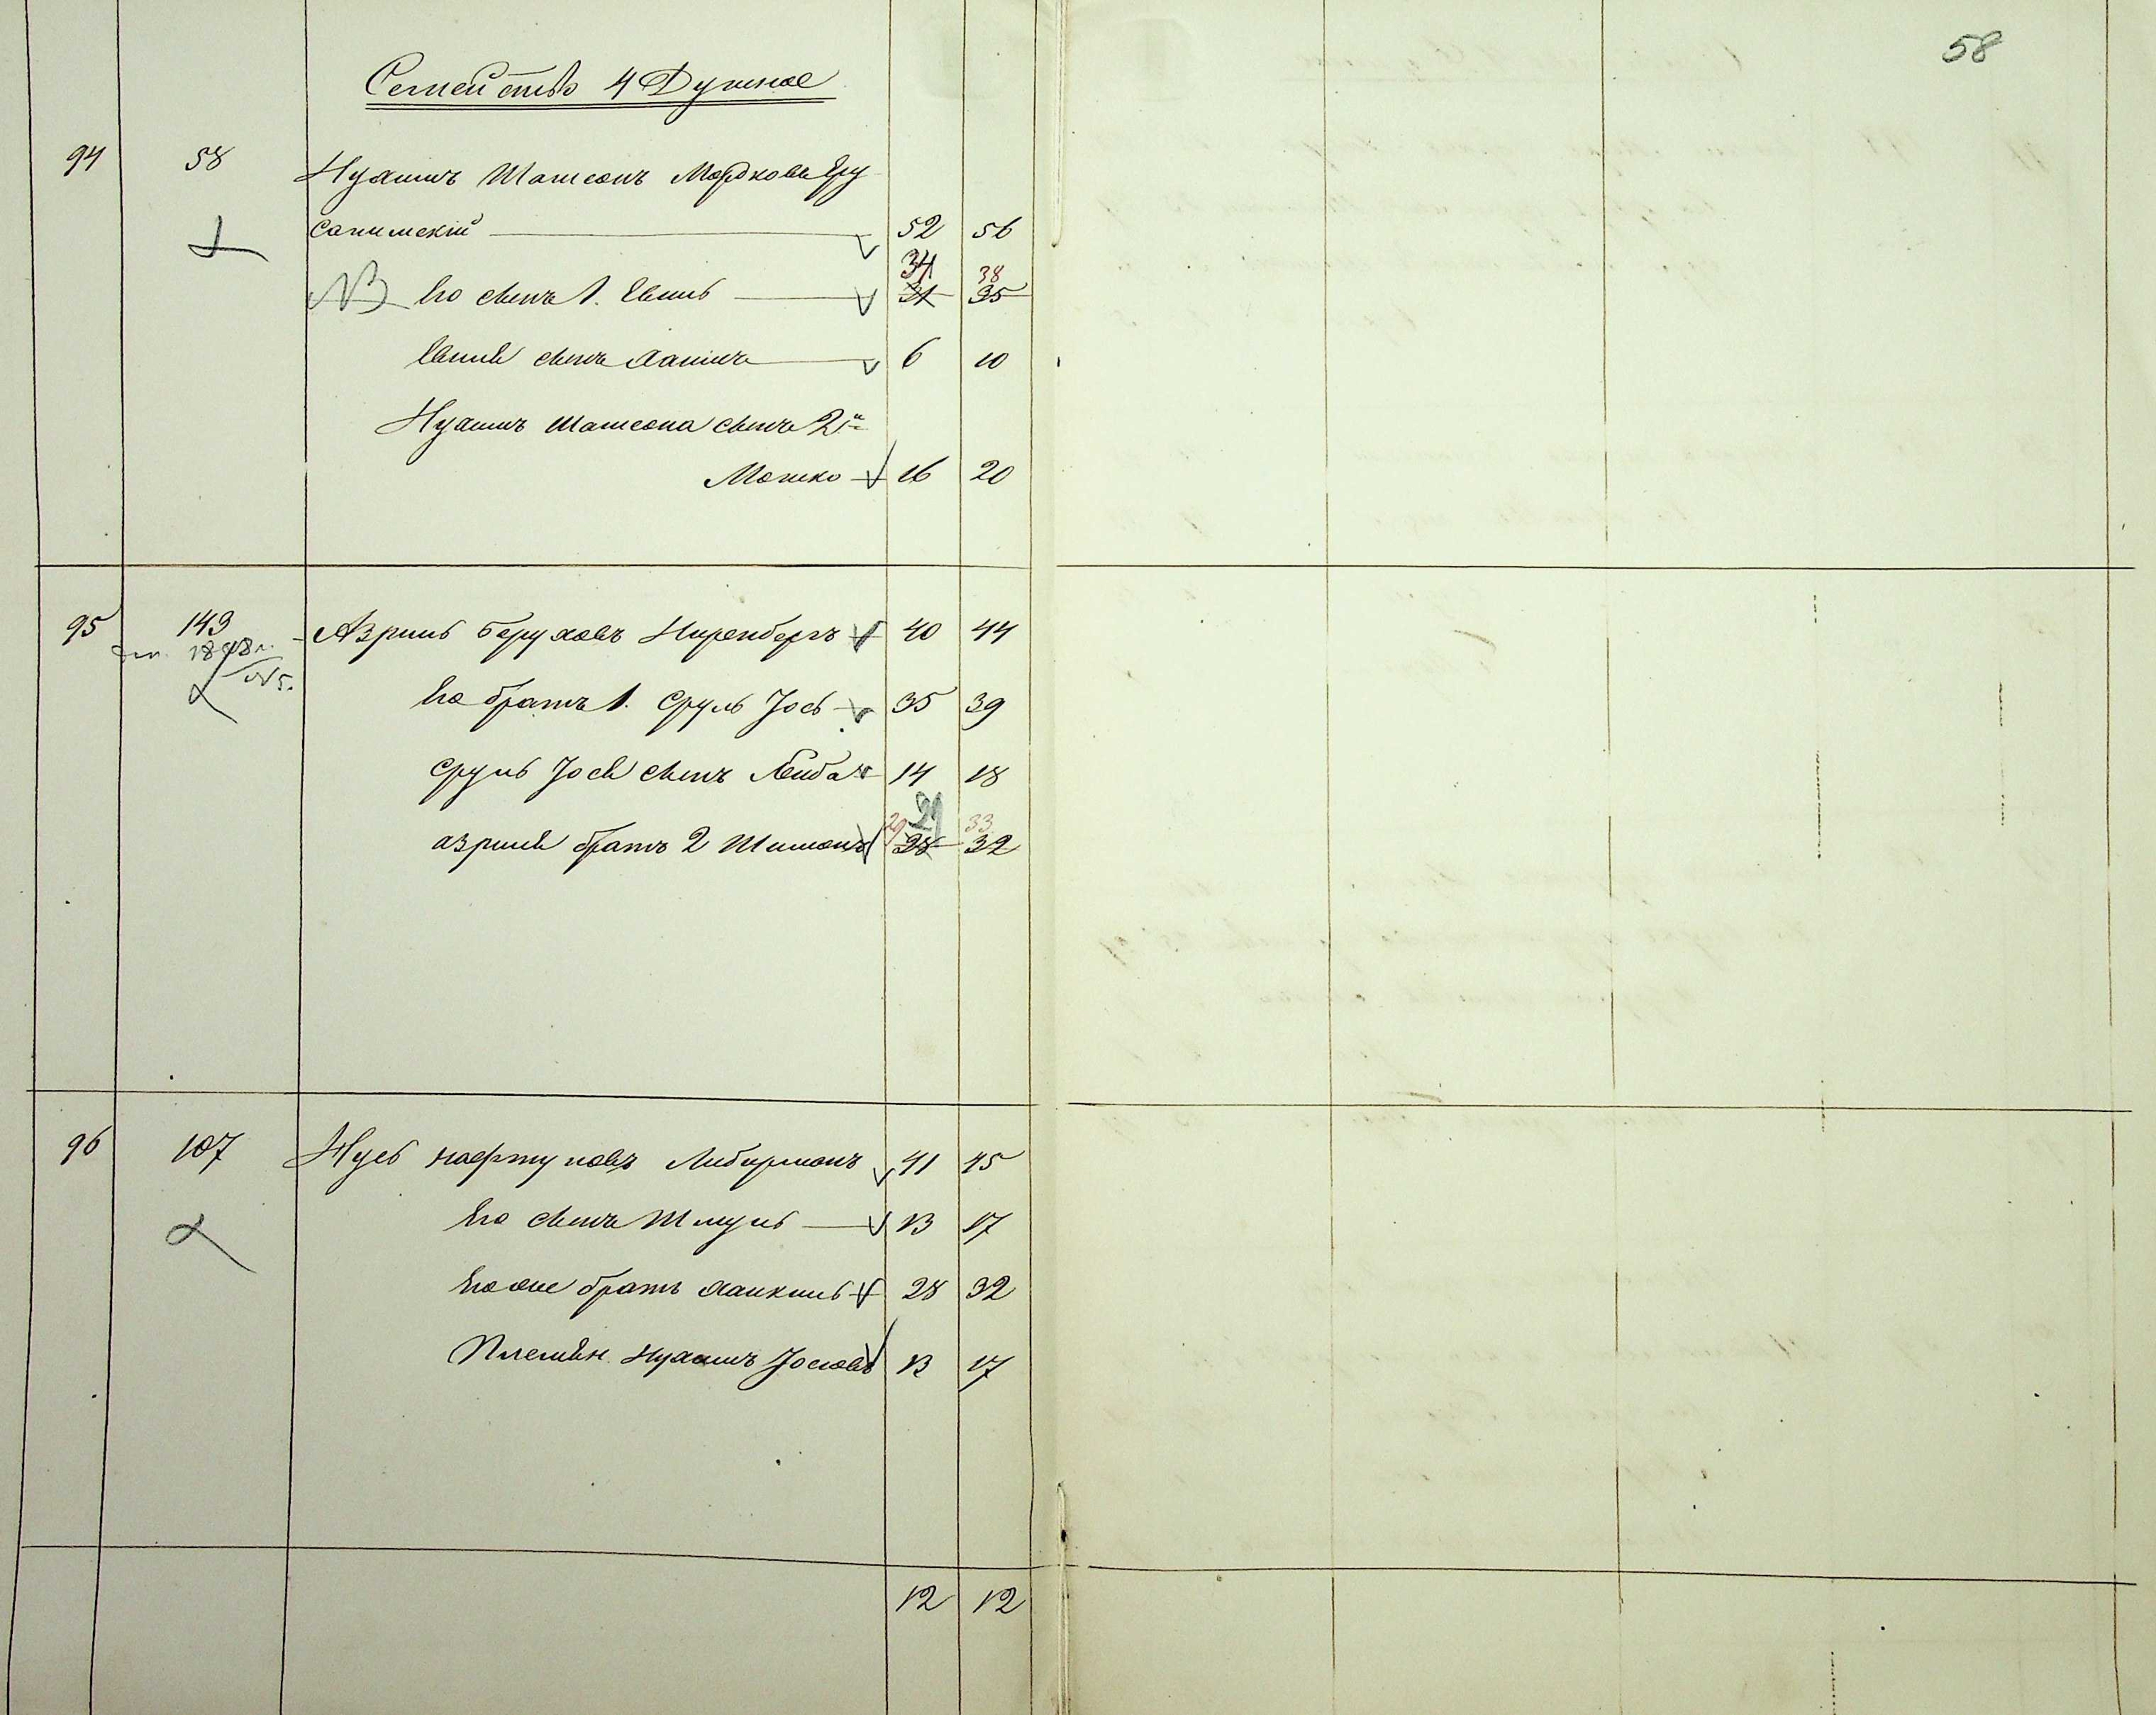 58
Семейство 4 Душное
94 58 Нухимъ Шамсонъ Мордковъ Еру
салимскій 52 56
NB Его сынъ 1. Евель 34 31 38 35
Евеля сынъ Хаимъ 6 10
Нухимъ Шамсона сынъ 2й
Мошко 16 20
95 143 Азриль Беруховъ Ниренбергъ 40 44
1878 г. № 5.
Его братъ 1. Сруль Іось 35 39
Сруль Іося сынъ Лейба 14 18
Азриля братъ 2 Шимонъ 29 29 28 33 32
96 107 Нусь Нафтуловъ Либерманъ 41 45
Его сынъ Шмуль 13 17
Его же братъ Янкель 28 32
Племян. Нухимъ Іосіовъ 13 17
12 12